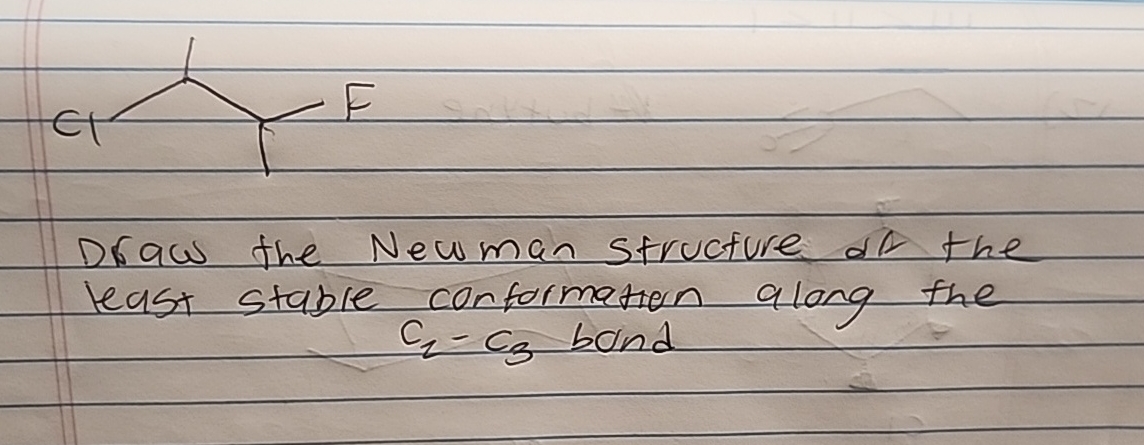 Cl
F
Draw the Newman structure of the
least stable conformation along the
C₂-C₃ bond